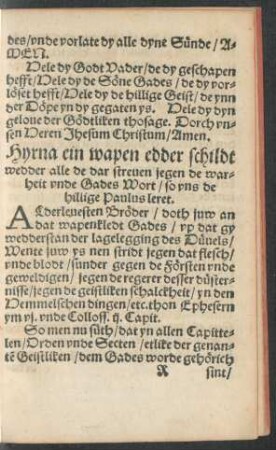 des/vnde vorlate dy alle dyne Sünde/A-
MEN.
Vele dy Godt Vader/de dy geschapen
hefft/Vele dy de Söne Gades/de dy vor-
löset hefft/Vele dy de hillige Geist/de ynn
der Döpe yn dy gegaten ys. Vele dy dyn
geloue der Gödtliken thosage. Dorch yn-
sen Heren Jhesum Christum/Amen.
Hyrna ein wapen edder schildt
wedder alle de dar streuen jegen de war-
heit vnde Gades Wort/so vns de
hillige Paulus leret.
ALderleuesten Bröder/doth juw an
dat wapenkledt Gades/vp dat gy
wedderstan der lagelegging des Düuels/
Wente juw ys nen stridt jegen dat flesch/
vnde blodt/sunder gegen de Försten vnde
geweldigen/jegen de regerer desser düster-
nisse/jegen de geistliken schalckheit/yn den
Hemmelschen dingen/etc. thon Ephesern
ym vj. vnde Colloss. ij. Capit.
So men nu süth/dat yn allen Capitte-
len/Orden vnde Secten/etlike der genan-
tē Geistliken/dem Gades worde gehörich
X sint/